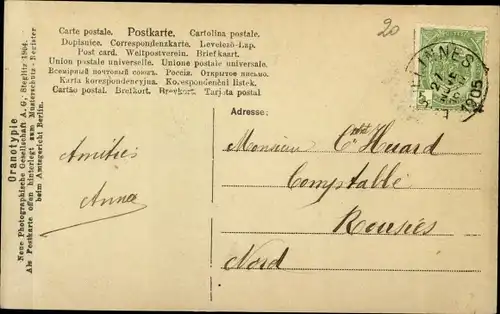 Carte postale. Postkarte. Cartolina postale.
Dopisnice. Correspondenzkarte. Levelező-Lap.
Post card. Weltpostverein. Briefkaart.
Union postale universelle. Unione postale universale.
Всемірный почтовый союзъ. Россія. Открытое письмо.
Karta korespondencyjna. Korespondenční lístek.
Cartão postal. Brefkort. Brevkort. Tarjeta postal
20
1905
Adresse:
Monsieur Huard
Comptable
Rousies
Nord
Amitiés
Anna
Oranotypie
Neue Photographische Gesellschaft A. G., Steglitz 1904.
Als Postkarte offen hinterlegt zum Musterschutz-Register
beim Amtsgericht Berlin.